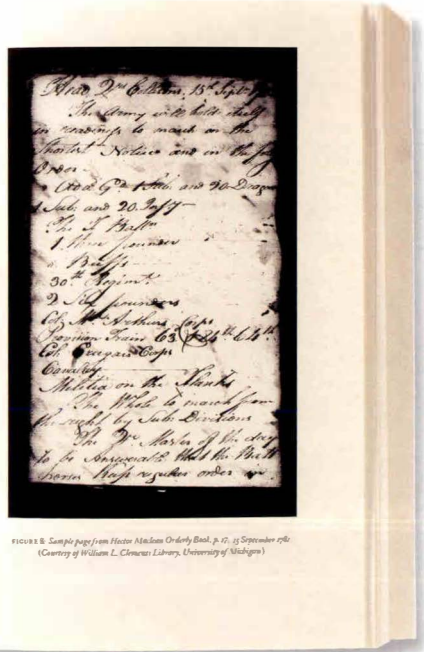 Head Qrs Eutaws, 15th Septr
The Army will hold itself
in readiness to march on the
shortest Notice and in the
Order
1 Sub. and 30 Drag
1 Sub. and 20
The
1 three pounder
Buffs
30th Regimt
2 Six pounders
Col. Mc Arthurs Corps
Provision Train 63d 64th
Col. Corps
Cavalry
Militia on the Flanks
The Whole to march from
the right by Sub. Divisions
The Qr. Master of the day
to be Answerable that the
horses keep regular order in
FIGURE 8: Sample page from Hector Maclean Orderly Book, p. 17, 15 September 1781
(Courtesy of William L. Clements Library, University of Michigan)